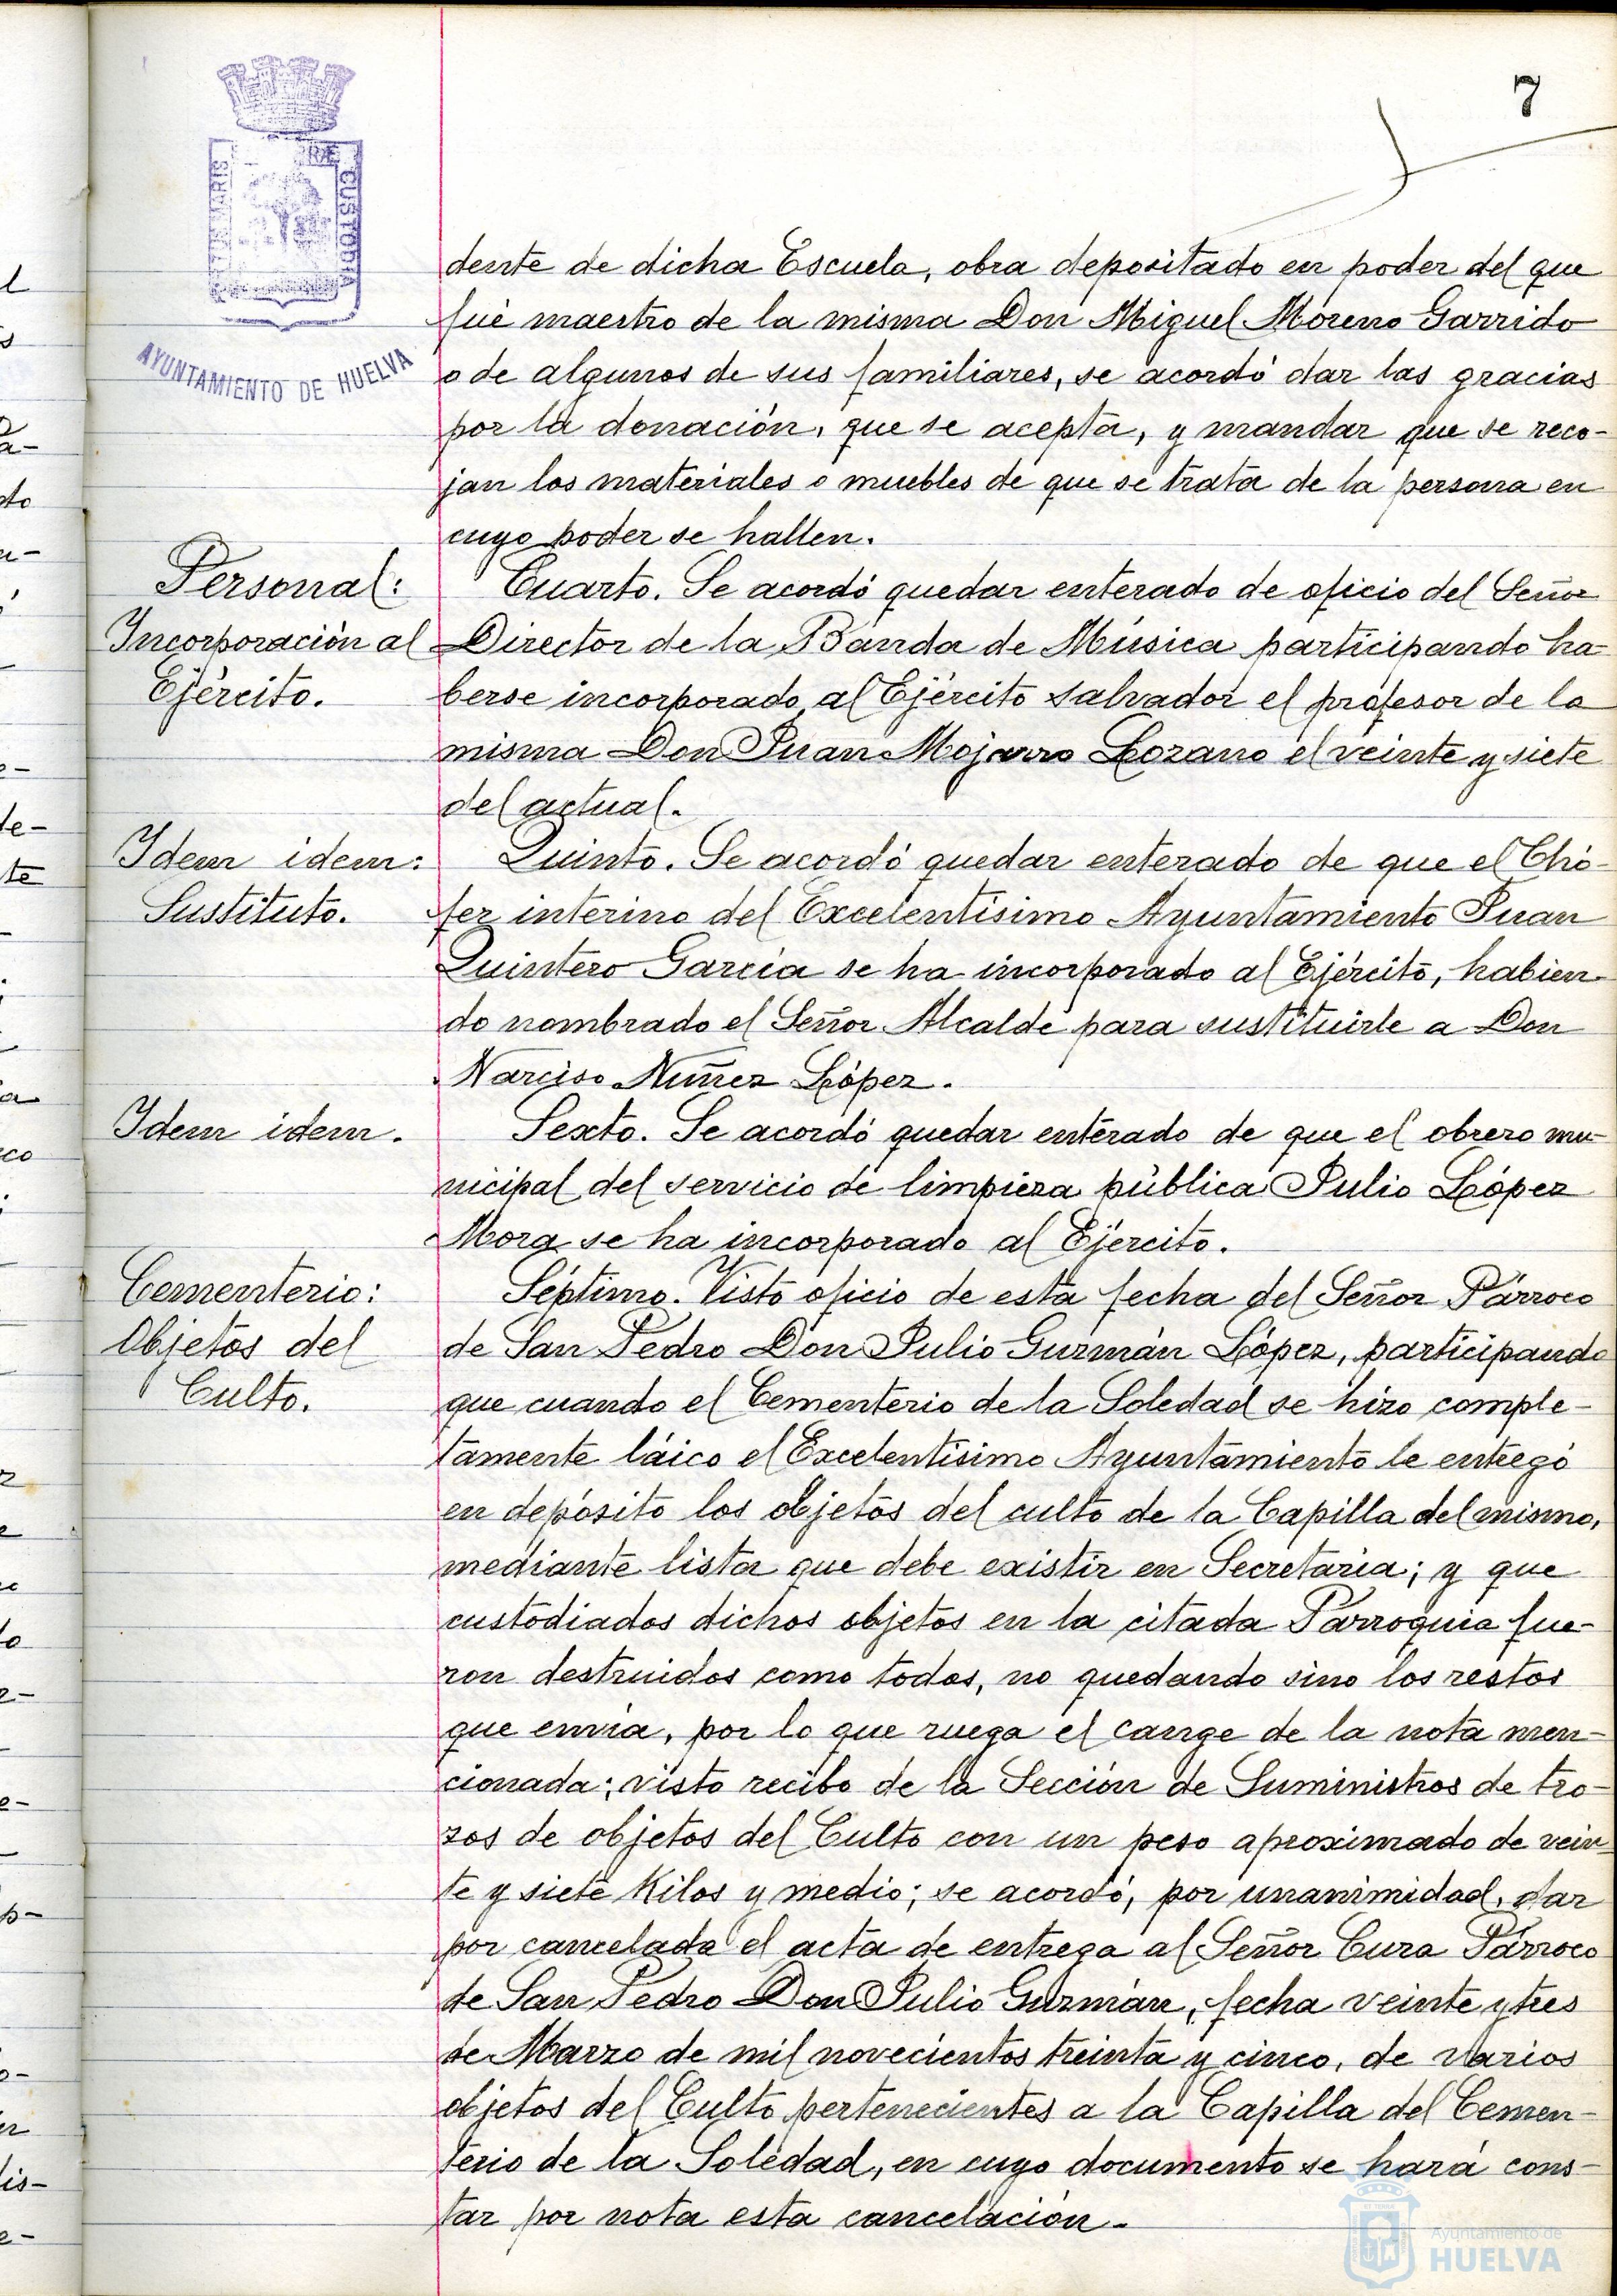 7
PORTUS MARIS
ET TERRAE
CUSTODIA
AYUNTAMIENTO DE HUELVA
dente de dicha Escuela, obra depositado en poder del que
fué maestro de la misma Don Miguel Moreno Garrido
o de algunos de sus familiares, se acordó dar las gracias
por la donación, que se acepta, y mandar que se reco-
jan los materiales o muebles de que se trata de la persona en
cuyo poder se hallen.
Personal:
Incorporación al
Ejército.
Cuarto. Se acordó quedar enterado de oficio del Señor
Director de la Banda de Música participando ha-
berse incorporado al Ejército salvador el profesor de la
misma Don Juan Mojarro Lozano el veinte y siete
del actual.
Idem idem:
Sustituto.
Quinto. Se acordó quedar enterado de que el Chó-
fer interino del Excelentísimo Ayuntamiento Juan
Quintero García se ha incorporado al Ejército, habien-
do nombrado el Señor Alcalde para sustituirle a Don
Narciso Nuñez López.
Idem idem.
Sexto. Se acordó quedar enterado de que el obrero mu-
nicipal del servicio de limpieza pública Julio López
Mora se ha incorporado al Ejército.
Cementerio:
Objetos del
Culto.
Séptimo. Visto oficio de esta fecha del Señor Párroco
de San Pedro Don Julio Guzmán López, participando
que cuando el Cementerio de la Soledad se hizo comple-
tamente láico el Excelentísimo Ayuntamiento le entregó
en depósito los objetos del culto de la Capilla del mismo,
mediante lista que debe existir en Secretaría; y que
custodiados dichos objetos en la citada Parroquia fue-
ron destruidos como todos, no quedando sino los restos
que envía, por lo que ruega el cange de la nota men-
cionada; visto recibo de la Sección de Suministros de tro-
zos de objetos del Culto con un peso aproximado de vein-
te y siete Kilos y medio; se acordó, por unanimidad, dar
por cancelada el acta de entrega al Señor Cura Párroco
de San Pedro Don Julio Guzmán, fecha veinte y tres
de Marzo de mil novecientos treinta y cinco, de varios
objetos del Culto pertenecientes a la Capilla del Cemen-
terio de la Soledad, en cuyo documento se hará cons-
tar por nota esta cancelación.-
Ayuntamiento de
HUELVA